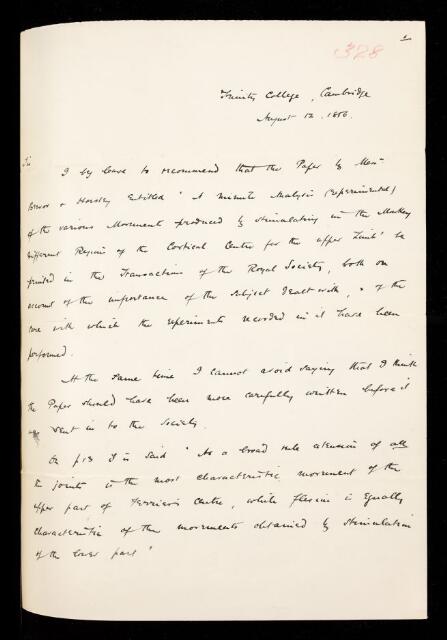 1
328
Trinity College, Cambridge
August 12, 1886.
Sir
I beg leave to recommend that the Paper by Mess
Beevor & Horsley Entitled "A minute Analysis (experimental)
of the various Movements produced by stimulating in the Monkey
different Regions of the Cortical Centre for the upper Limb" be
printed in the Transactions of the Royal Society, both on
account of the importance of the subject dealt with, & of the
care with which the experiments recorded in it have been
performed.
At the same time I cannot avoid saying that I think
the Paper should have been more carefully written before it
was sent in to the Society.
On p 13 it is said "As a broad rule extension of all
the joints is the most characteristic movement of the
upper part of Ferrier's Centre, while flexion is equally
characteristic of the movements obtained by stimulation
of the lower part"